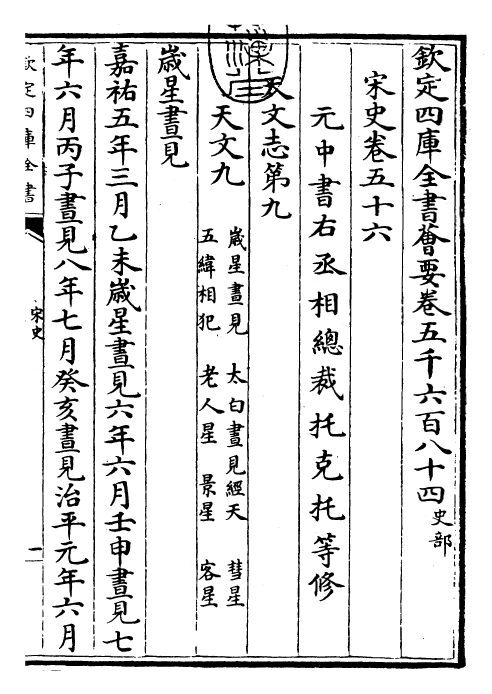 欽定四庫全書薈要卷五千六百八十四史部
宋史卷五十六
元中書右丞相總裁托克托等修
天文志第九
天文九
歲星晝見　太白晝見經天　彗星
五緯相犯　老人星　景星　客星
歲星晝見
嘉祐五年三月乙未歲星晝見六年六月壬申晝見七
年六月丙子晝見八年七月癸亥晝見治平元年六月
欽定四庫全書
宋史
一